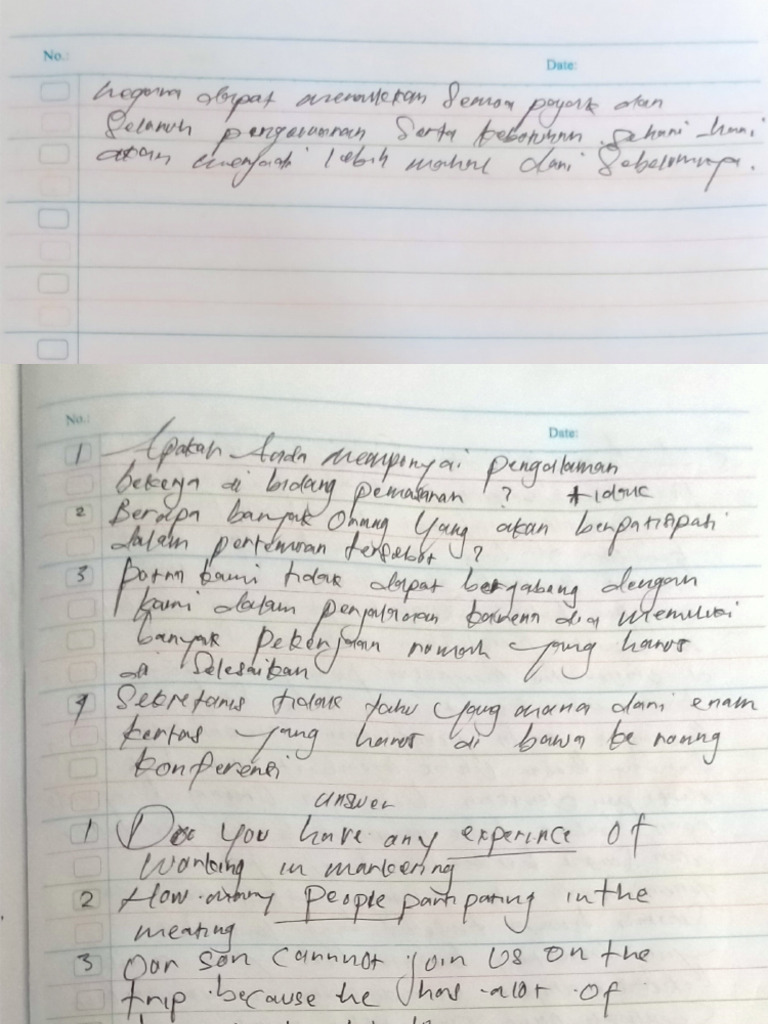 No.: Date:
negara dapat menaikkan semua pajak dan
seluruh pengeluaran serta kebutuhan sehari-hari
akan menjadi lebih mahal dari sebelumnya.
No.: Date:
1 Apakah Anda mempunyai pengallaman
bekerja di bidang pemasaran ? tidak
2 Berapa banyak orang yang akan berpatisipati
dalam pertemuan tersebut ?
3 putra kami tidak dapat bergabung dengan
kami dalam perjalanan karena dia memiliki
banyak pekerjaan rumah yang harus
di selesaikan
4 Sekretaris tidak tahu yang mana dari enam
kertas yang harus di bawa ke ruang
konferensi
answer
1 Do you have any experince of
working in markering
2 How many people partipating in the
meating
3 Our son cannnot join us on the
trip because he has alot of